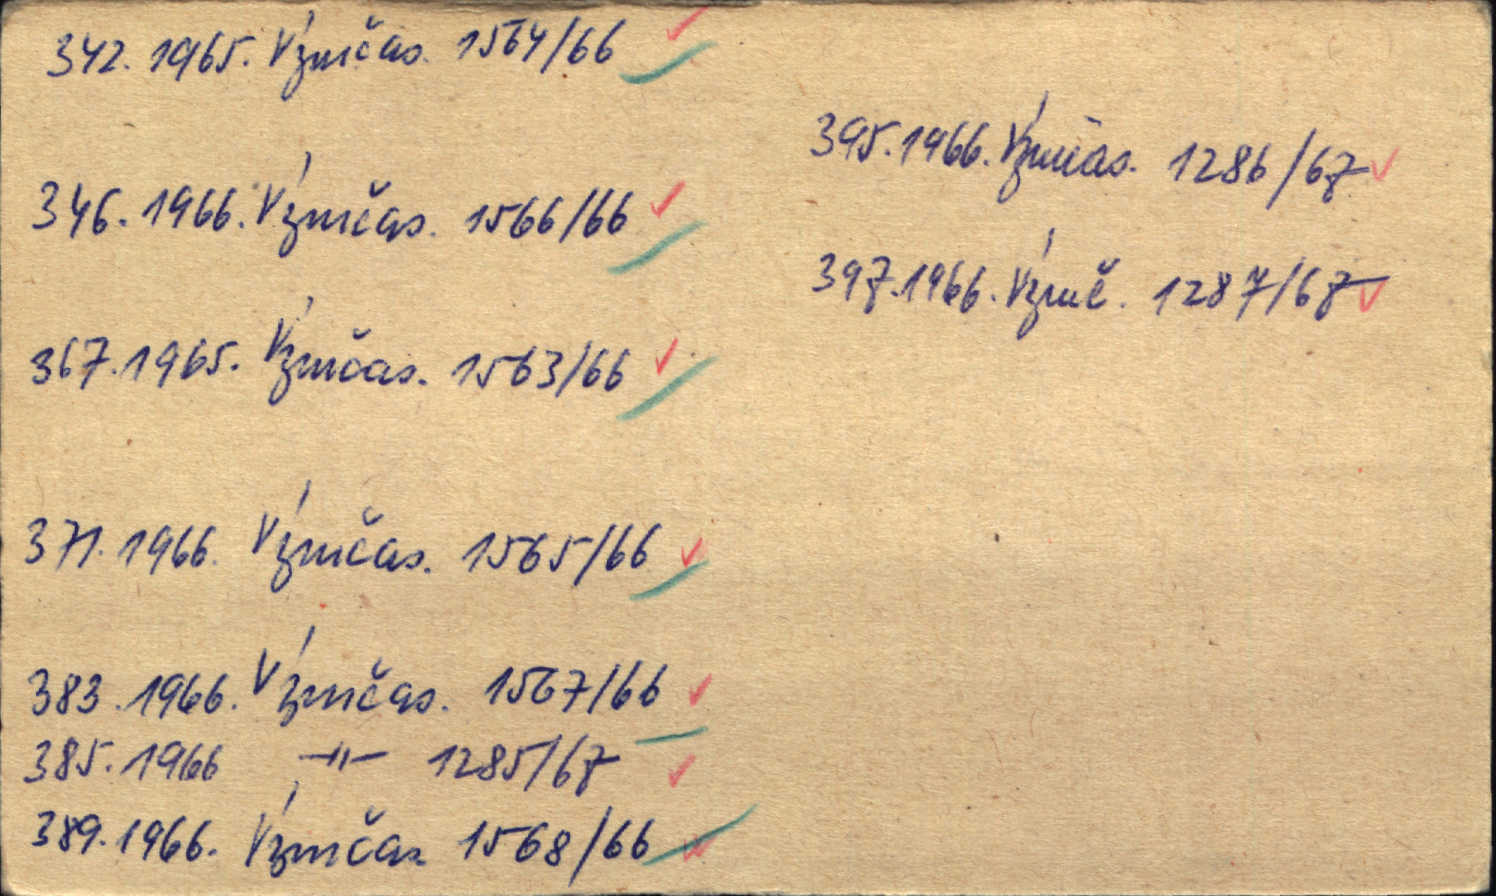 342. 1965. Význičas. 1564/66
346. 1966. Význičas. 1566/66
367. 1965. Význičas. 1563/66
371. 1966. Význičas. 1565/66
383. 1966. Význičas. 1567/66
385. 1966 —〃— 1285/67
389. 1966. Význičas 1568/66
395. 1966. Význičas. 1286/67
397. 1966. Význič. 1287/67